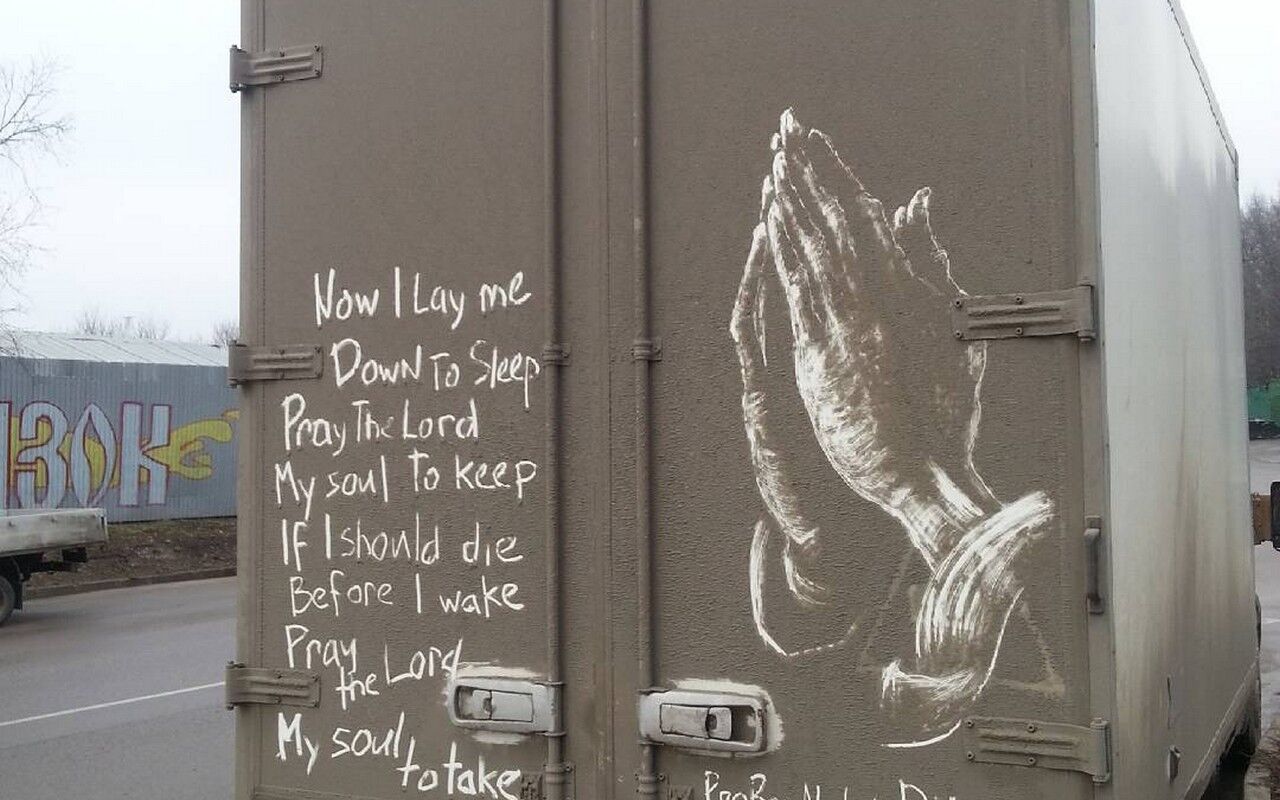 Now I Lay me
Down To Sleep
Pray The Lord
My soul To keep
IF I should die
Before I wake
Pray
the Lord
My soul
to take
ЗОК